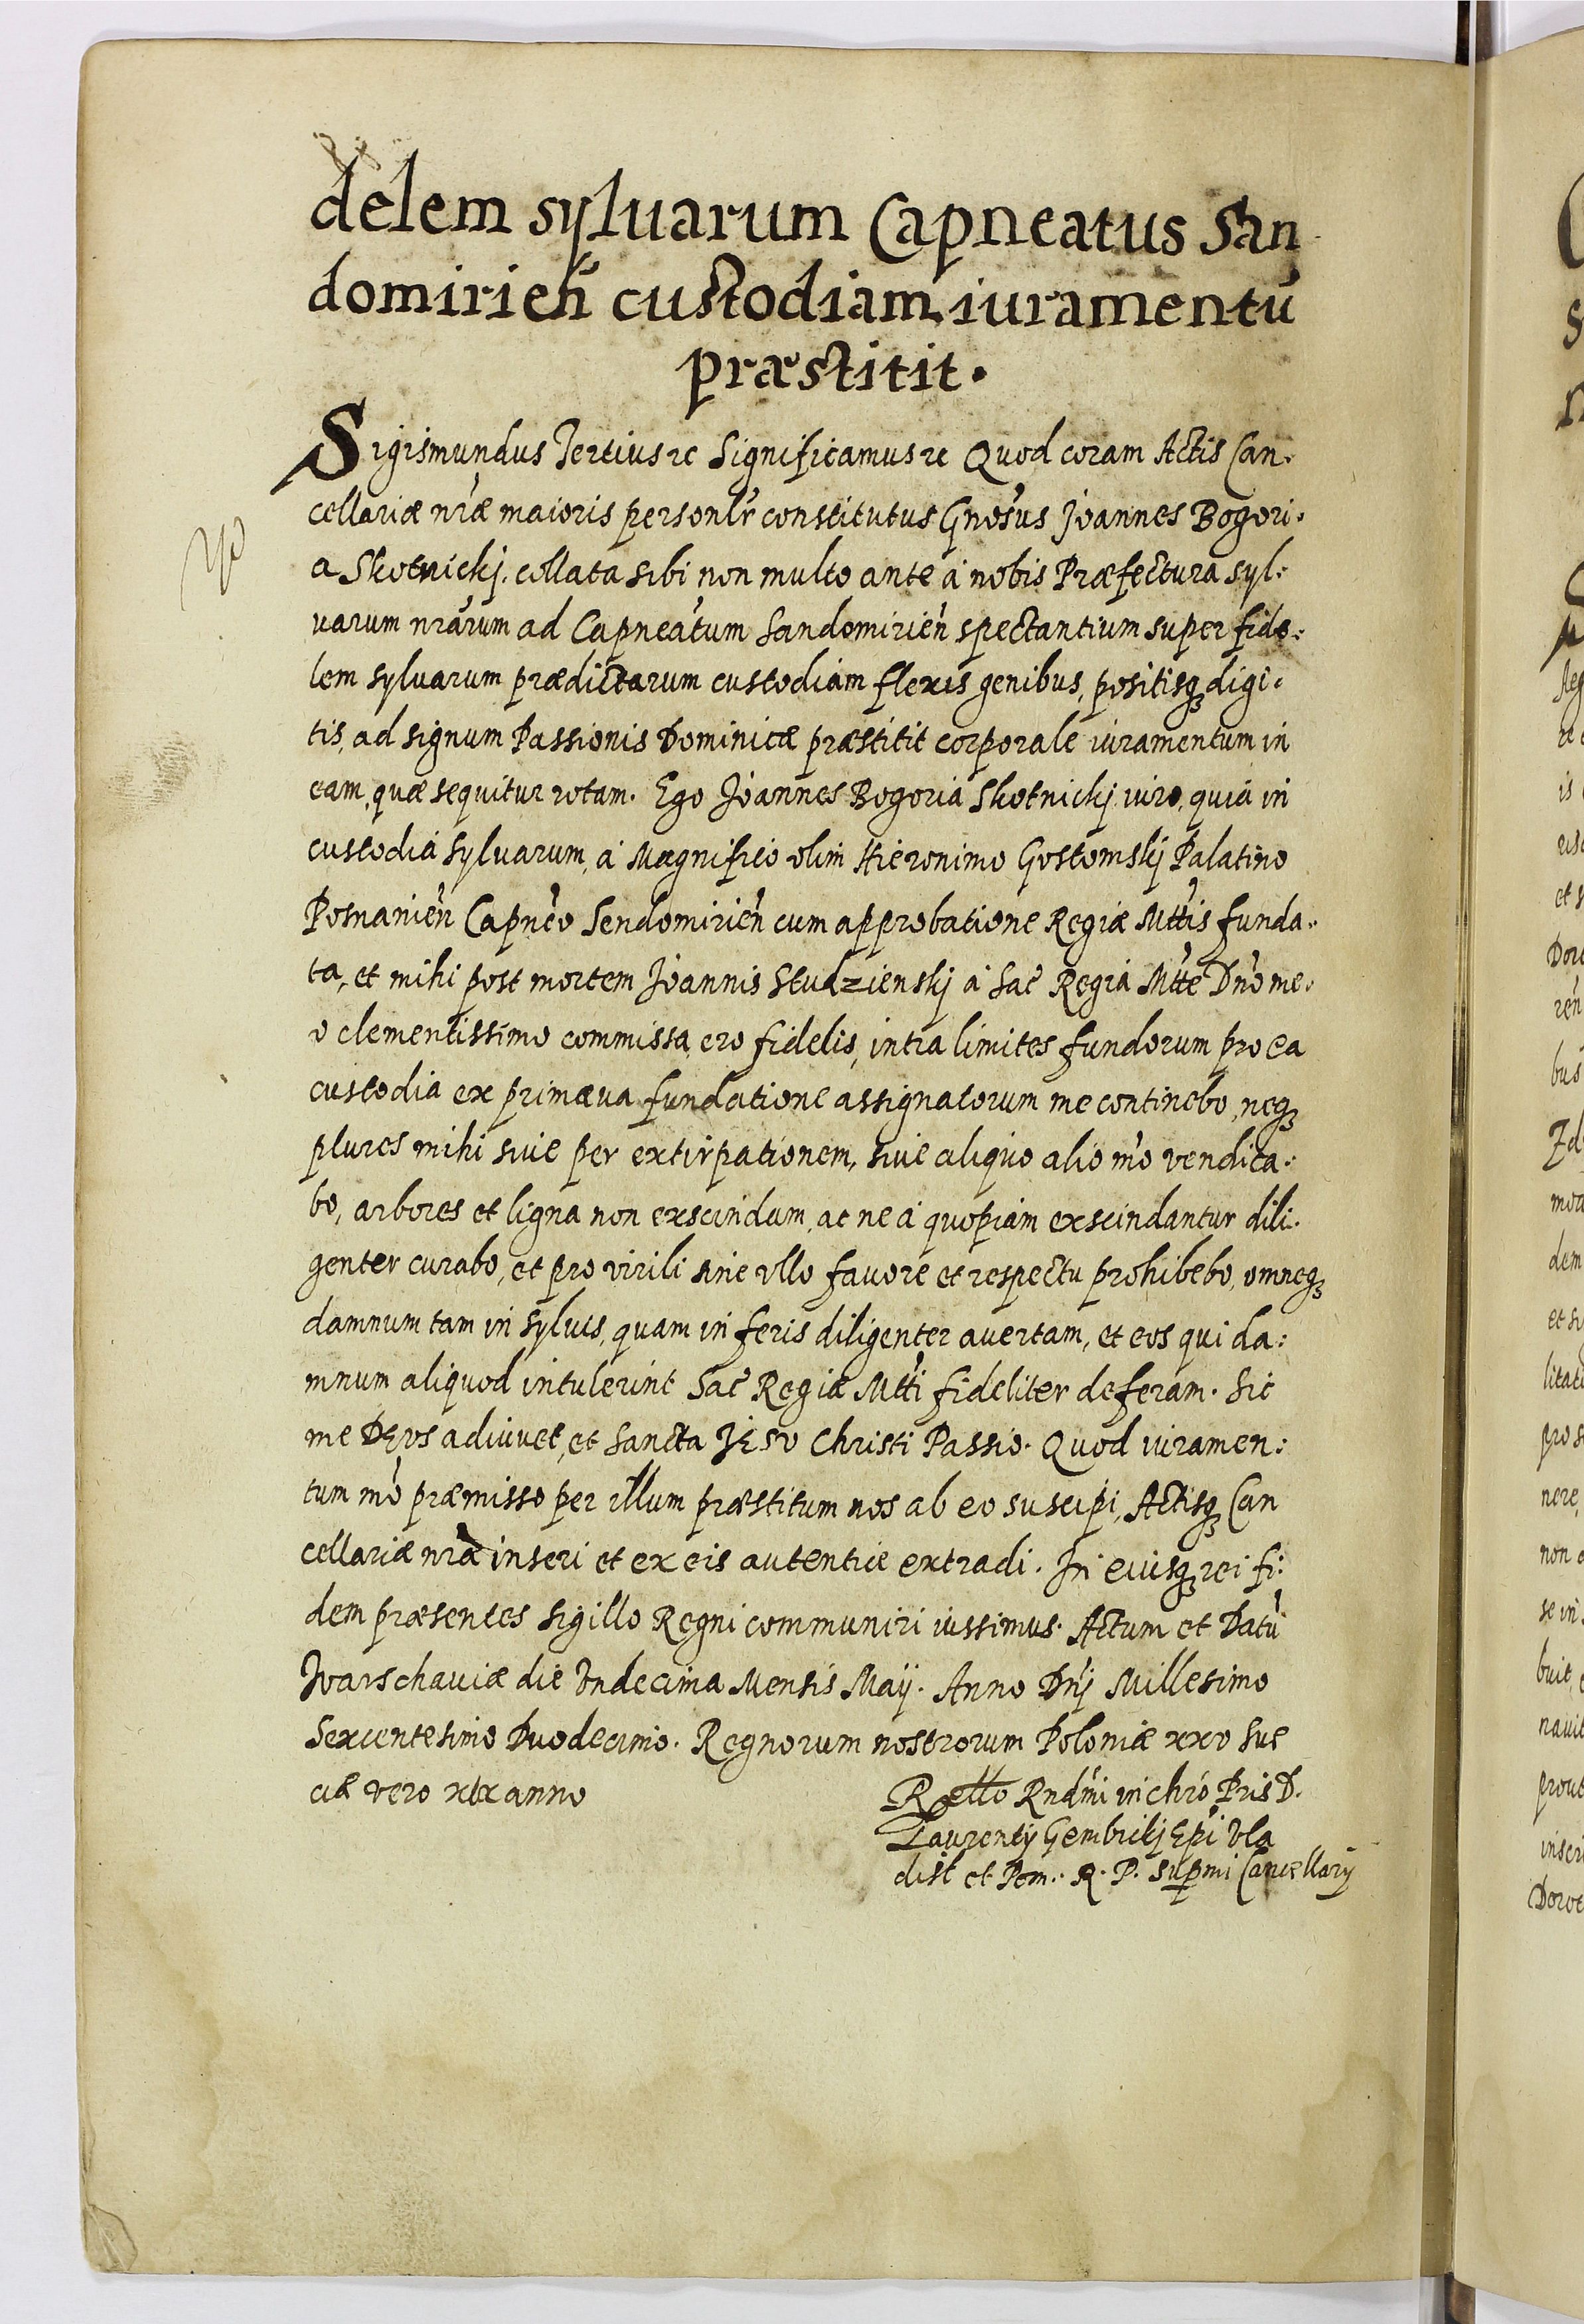 delem syluarum Capneatus San
domirien̄ custodiam iuramentū
præstitit.
Sigismundus Tertius ꝛc Significamus ꝛc Quod coram Actis Can:
cellariæ nr̄æ maioris personlr̄ constitutus Gnōsus Joannes Bogori:
a Skotnickj. collata sibi non multo ante à nobis Præfectura syl:
uarum nr̄arum ad Capneātum Sandomirien̄ spectantium super fide:
lem syluarum prædictarum custodiam flexis genibus, positisq́ꝫ digi:
tis, ad signum Passionis Dominicæ præstitit corporale iuramentum in
eam, quæ sequitur rotam. Ego Joannes Bogoria Skotnickj iuro, quia in
custodia syluarum, à Magnifico olim Hieronimo Gostomskj Palatino
Posnanien̄ Capnēo Sendomirien̄ cum approbatione Regiæ Mttis funda:
ta, et mihi post mortem Joannis Studzienskj à Sac̄ Regia Mtte Dn̄o me:
o clementissimo commissa ero fidelis, intra limites fundorum pro ea
custodia ex primæua fundatione assignatorum me continebo, neqꝫ
plures mihi siue per extirpationem, siue aliquo alio mō vendica:
bo, arbores et ligna non exscindam, ac ne à quopiam exscindantur dili:
genter curabo, et pro virili sine vllo fauore et respectu prohibebo, omneqꝫ
damnum tam in syluis, quam in feris diligenter auertam, et eos qui da:
mnum aliquod intulerint Sac̄ Regiæ Mtti fideliter deferam. Sic
me DEVS adiuuet, et Sancta JESV Christi Passio. Quod iuramen:
tum mō præmisso per illum præstitum nos ab eo suscipi, Actisqꝫ Can
cellariæ nr̄æ inseri et ex eis autentice extradi. In cuiusqꝫ rei fi:
dem præsentes sigillo Regni communiri iussimus. Actum et Datū
Warschauiæ die Vndecima Mensis Maij. Anno Dn̄j Millesimo
Sexcentesimo Duodecimo. Regnorum nostrorum Poloniæ xxv Sue
ciæ vero xix anno
R̄ello Rndm̄i in chrō Pris D.
Laurentij Gembickj Ep̄i Vla
disl et Pom. R. P. Supmi Cancellarij